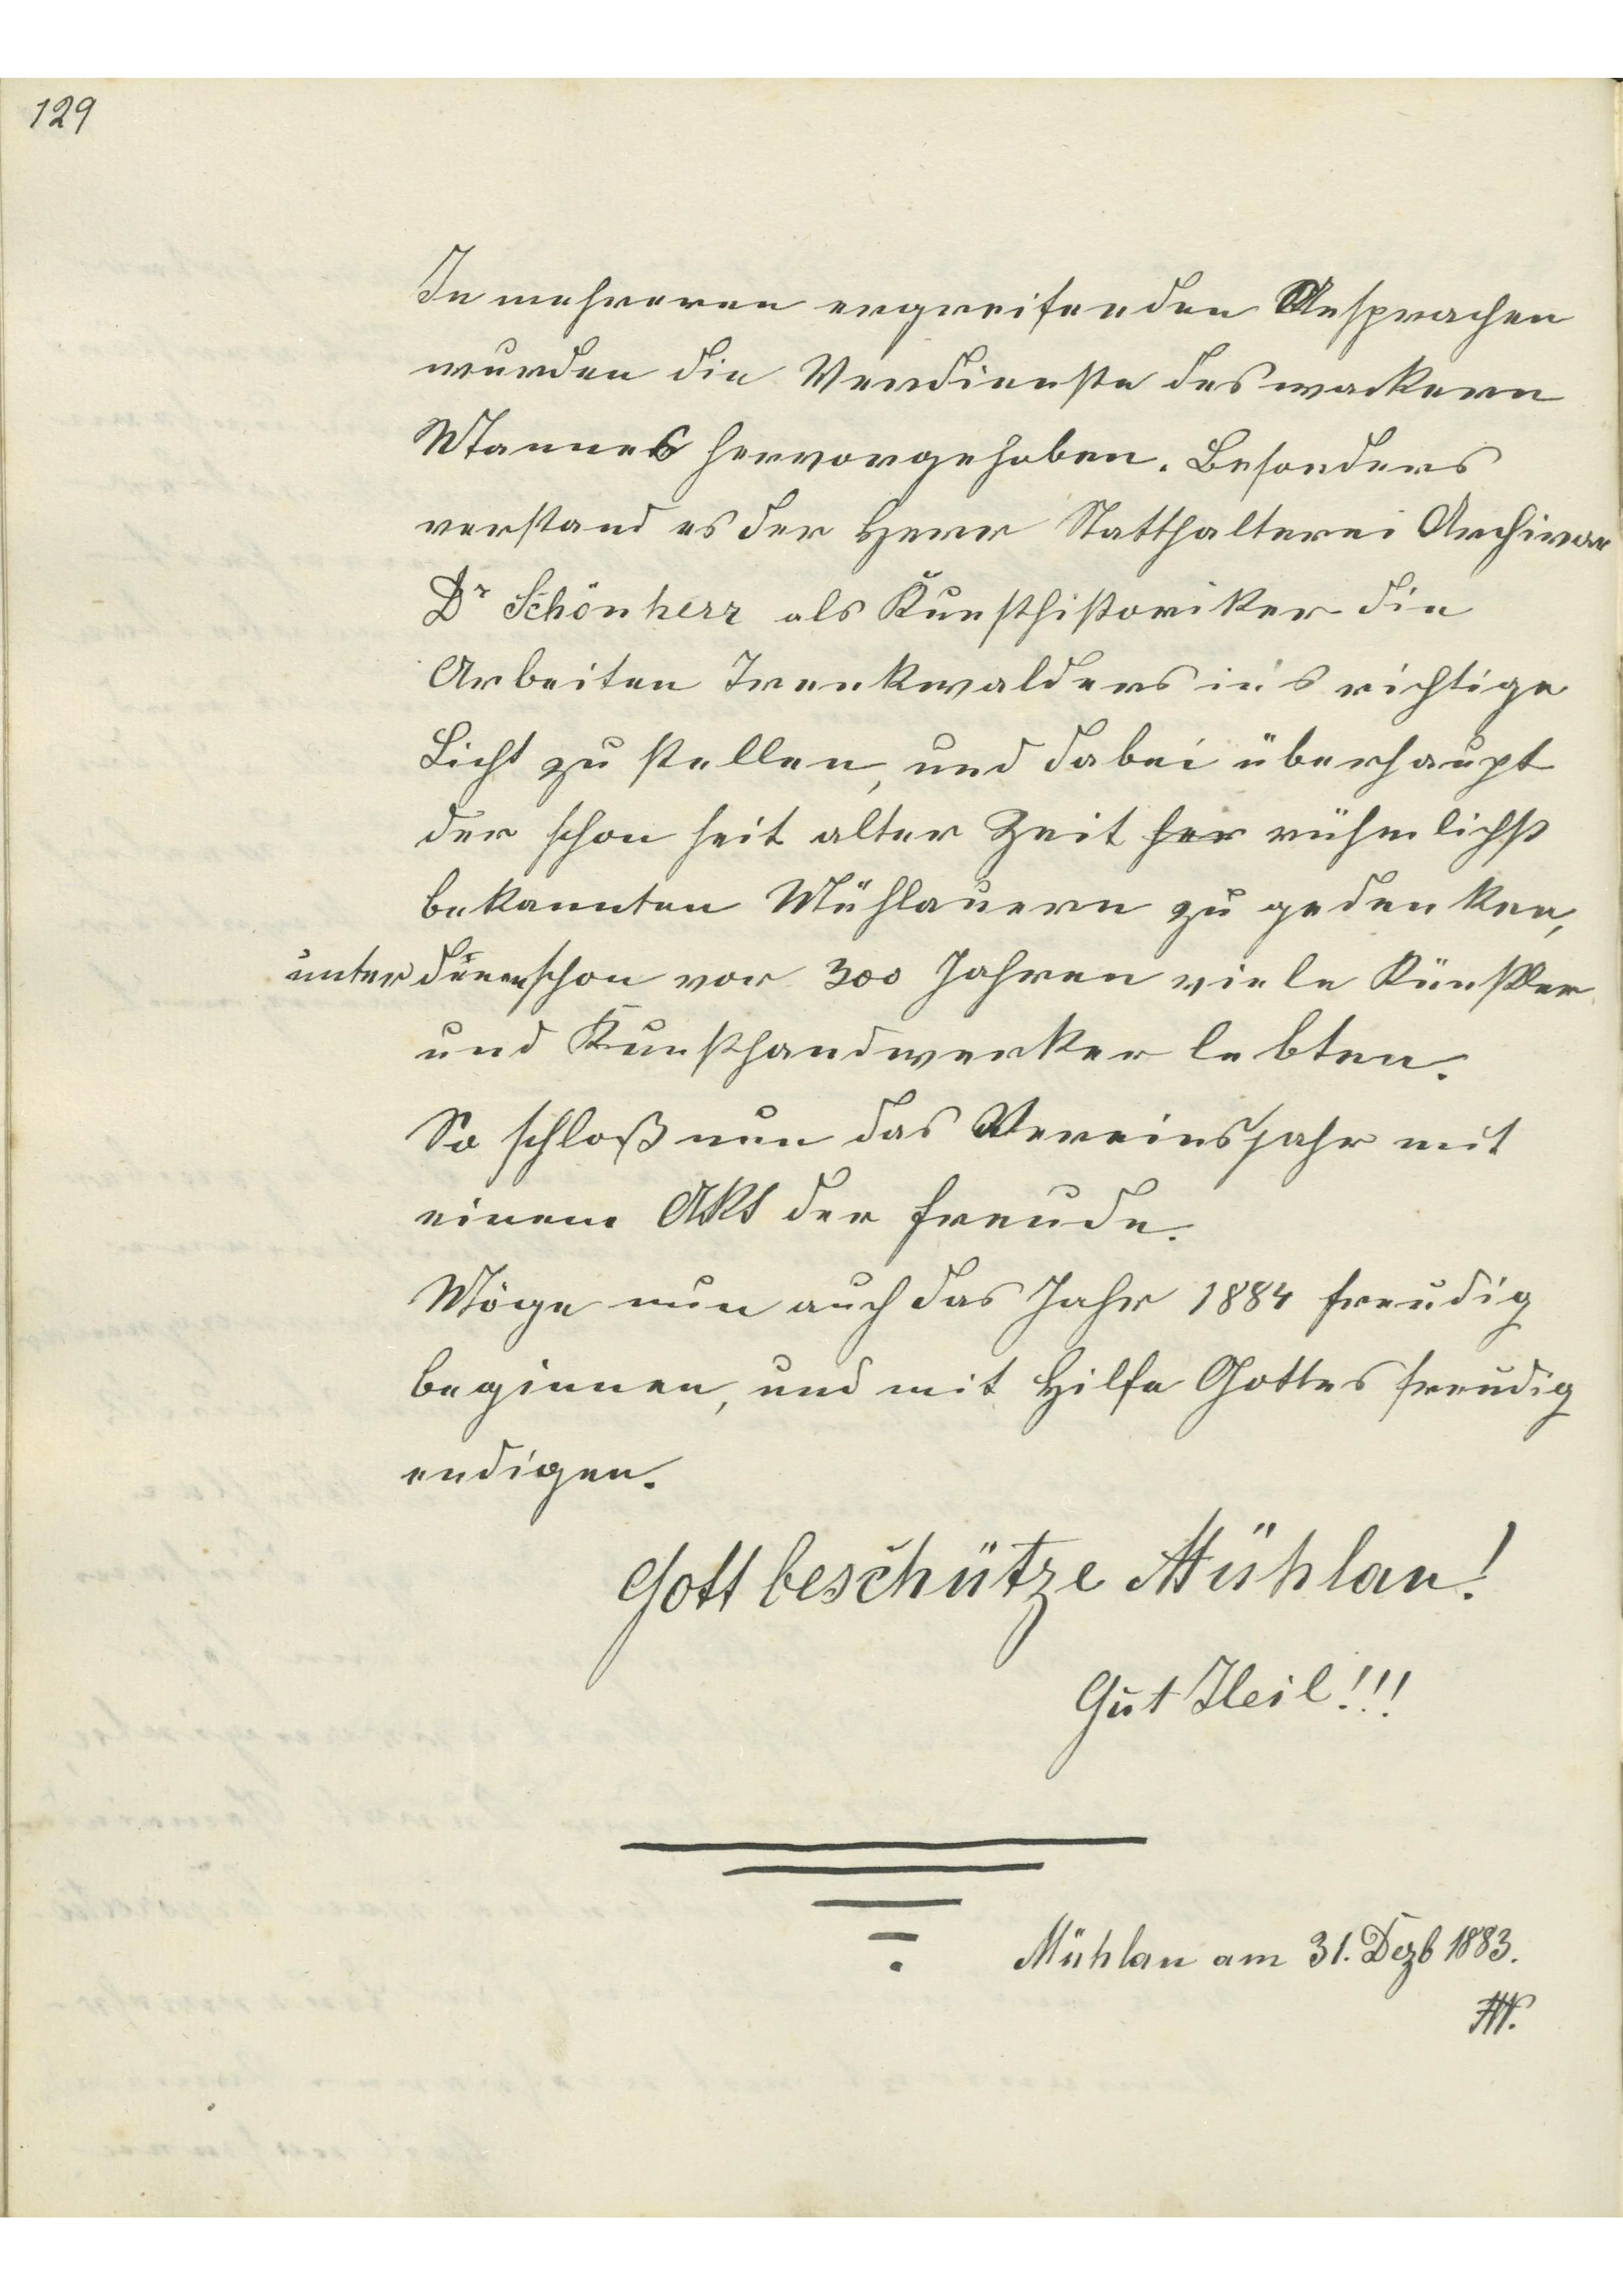 129
In mehreren ergreifenden Ansprachen
wurden die Verdienste des wackern
Mannes hervorgehoben. Besonders
verstand es der Herr Statthalterei Archivar
Dr Schönherr als Kunsthistoriker die
Arbeiten Trenkwalders in's richtige
Licht zu stellen, und dabei überhaupt
der schon seit alter Zeit her rühmlichst
bekannten Mühlauern zu gedenken,
unter denen schon vor 300 Jahren viele Künstler
und Kunsthandwerker lebten.
So schloß nun das Vereinsjahr mit
einem Akt der Freude.
Möge nun auch das Jahr 1884 freudig
beginnen, und mit Hilfe Gottes freudig
endigen.
Gott beschütze Mühlau!
Gut Heil!!!
Mühlau am 31. Dezb 1883.